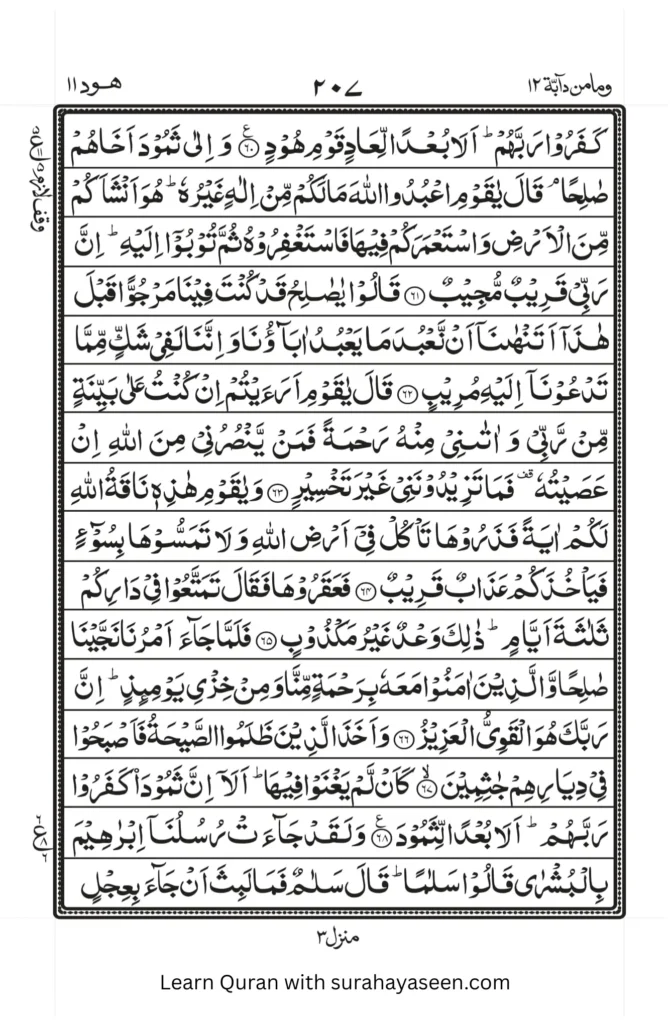 ومامن دآبّة ۱۲
۲۰۷
ھود ۱۱
كَفَرُوْا رَبَّهُمْ ؕ اَلَا بُعْدًا لِّعَادٍ قَوْمِ هُوْدٍ ۝۶۰ وَ اِلٰى ثَمُوْدَ اَخَاهُمْ
صٰلِحًا ۘ قَالَ يٰقَوْمِ اعْبُدُوا اللّٰهَ مَا لَكُمْ مِّنْ اِلٰهٍ غَيْرُهٗ ؕ هُوَ اَنْشَاَكُمْ
مِّنَ الْاَرْضِ وَ اسْتَعْمَرَكُمْ فِيْهَا فَاسْتَغْفِرُوْهُ ثُمَّ تُوْبُوْۤا اِلَيْهِ ؕ اِنَّ
رَبِّيْ قَرِيْبٌ مُّجِيْبٌ ۝۶۱ قَالُوْا يٰصٰلِحُ قَدْ كُنْتَ فِيْنَا مَرْجُوًّا قَبْلَ
هٰذَاۤ اَتَنْهٰىنَاۤ اَنْ نَّعْبُدَ مَا يَعْبُدُ اٰبَآؤُنَا وَ اِنَّنَا لَفِيْ شَكٍّ مِّمَّا
تَدْعُوْنَاۤ اِلَيْهِ مُرِيْبٍ ۝۶۲ قَالَ يٰقَوْمِ اَرَءَيْتُمْ اِنْ كُنْتُ عَلٰى بَيِّنَةٍ
مِّنْ رَّبِّيْ وَ اٰتٰىنِيْ مِنْهُ رَحْمَةً فَمَنْ يَّنْصُرُنِيْ مِنَ اللّٰهِ اِنْ
عَصَيْتُهٗ قف فَمَا تَزِيْدُوْنَنِيْ غَيْرَ تَخْسِيْرٍ ۝۶۳ وَ يٰقَوْمِ هٰذِهٖ نَاقَةُ اللّٰهِ
لَكُمْ اٰيَةً فَذَرُوْهَا تَاْكُلْ فِيْۤ اَرْضِ اللّٰهِ وَ لَا تَمَسُّوْهَا بِسُوْٓءٍ
فَيَاْخُذَكُمْ عَذَابٌ قَرِيْبٌ ۝۶۴ فَعَقَرُوْهَا فَقَالَ تَمَتَّعُوْا فِيْ دَارِكُمْ
ثَلٰثَةَ اَيَّامٍ ؕ ذٰلِكَ وَعْدٌ غَيْرُ مَكْذُوْبٍ ۝۶۵ فَلَمَّا جَآءَ اَمْرُنَا نَجَّيْنَا
صٰلِحًا وَّ الَّذِيْنَ اٰمَنُوْا مَعَهٗ بِرَحْمَةٍ مِّنَّا وَ مِنْ خِزْيِ يَوْمِىِٕذٍ ؕ اِنَّ
رَبَّكَ هُوَ الْقَوِيُّ الْعَزِيْزُ ۝۶۶ وَ اَخَذَ الَّذِيْنَ ظَلَمُوا الصَّيْحَةُ فَاَصْبَحُوْا
فِيْ دِيَارِهِمْ جٰثِمِيْنَ ۙ۝۶۷ كَاَنْ لَّمْ يَغْنَوْا فِيْهَا ؕ اَلَاۤ اِنَّ ثَمُوْدَاۡ كَفَرُوْا
رَبَّهُمْ ؕ اَلَا بُعْدًا لِّثَمُوْدَ ۝۶۸ وَ لَقَدْ جَآءَتْ رُسُلُنَاۤ اِبْرٰهِيْمَ
بِالْبُشْرٰى قَالُوْا سَلٰمًا ؕ قَالَ سَلٰمٌ فَمَا لَبِثَ اَنْ جَآءَ بِعِجْلٍ
منزل ۳
Learn Quran with surahayaseen.com